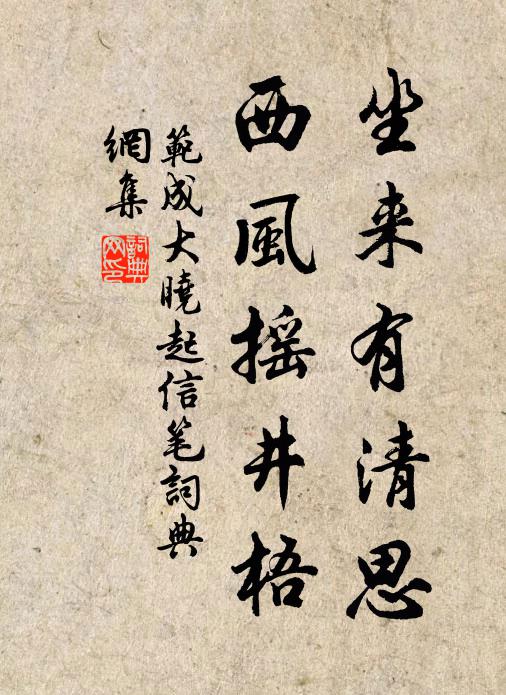 坐来有清思
西風摇井梧
範成大曉起信笔詞典
網集
詞典网印